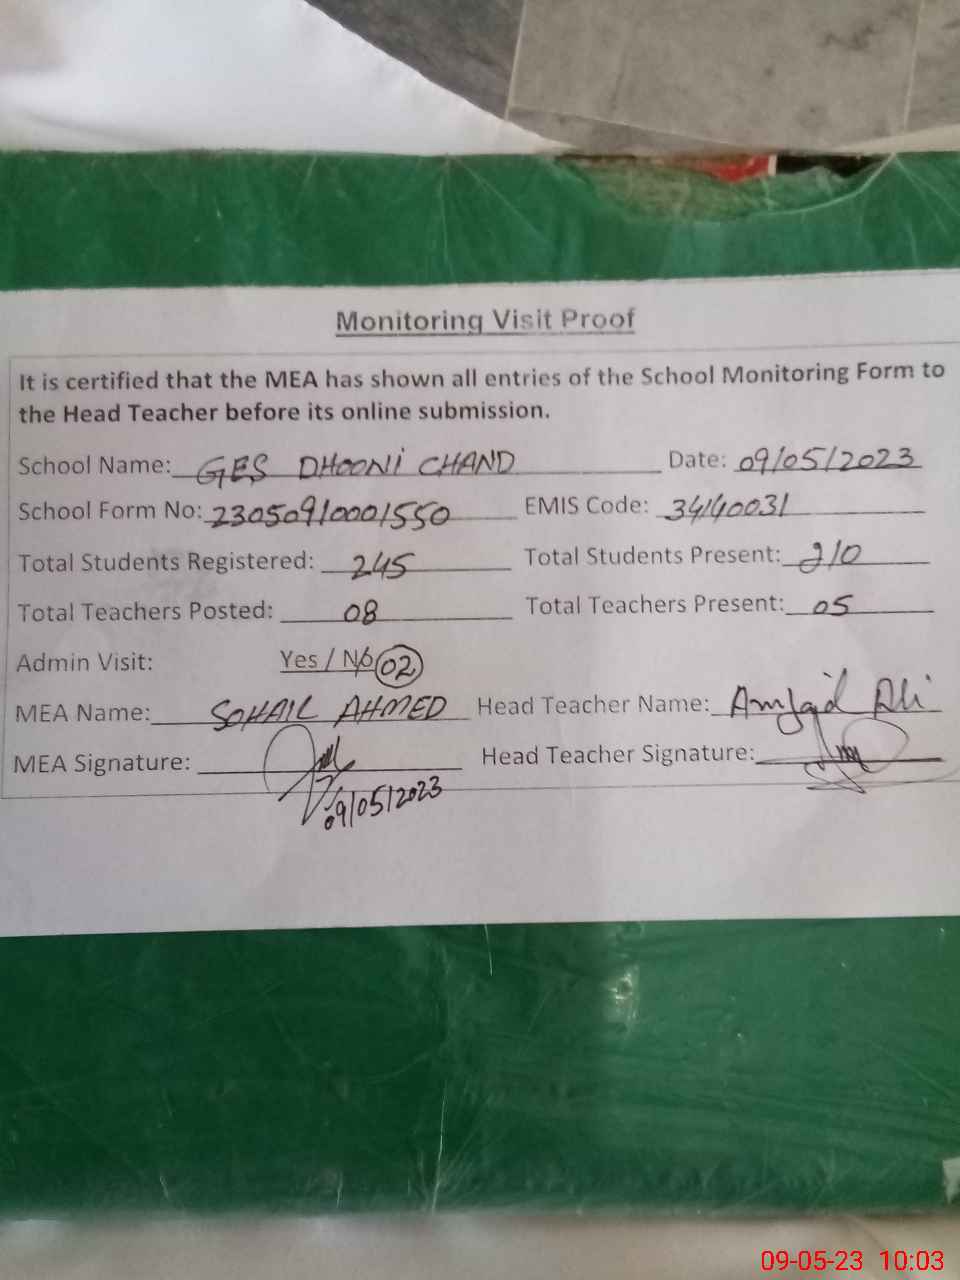 Monitoring Visit Proof
It is certified that the MEA has shown all entries of the School Monitoring Form to
the Head Teacher before its online submission.
School Name: GES DHOONI CHAND Date: 09/05/2023
School Form No: 23050910001550 EMIS Code: 34140031
Total Students Registered: 245 Total Students Present: 210
Total Teachers Posted: 08 Total Teachers Present: 05
Admin Visit: Yes / No 02
MEA Name: SOHAIL AHMED Head Teacher Name: Amjad Ali
MEA Signature: Head Teacher Signature:
09/05/2023
09-05-23 10:03